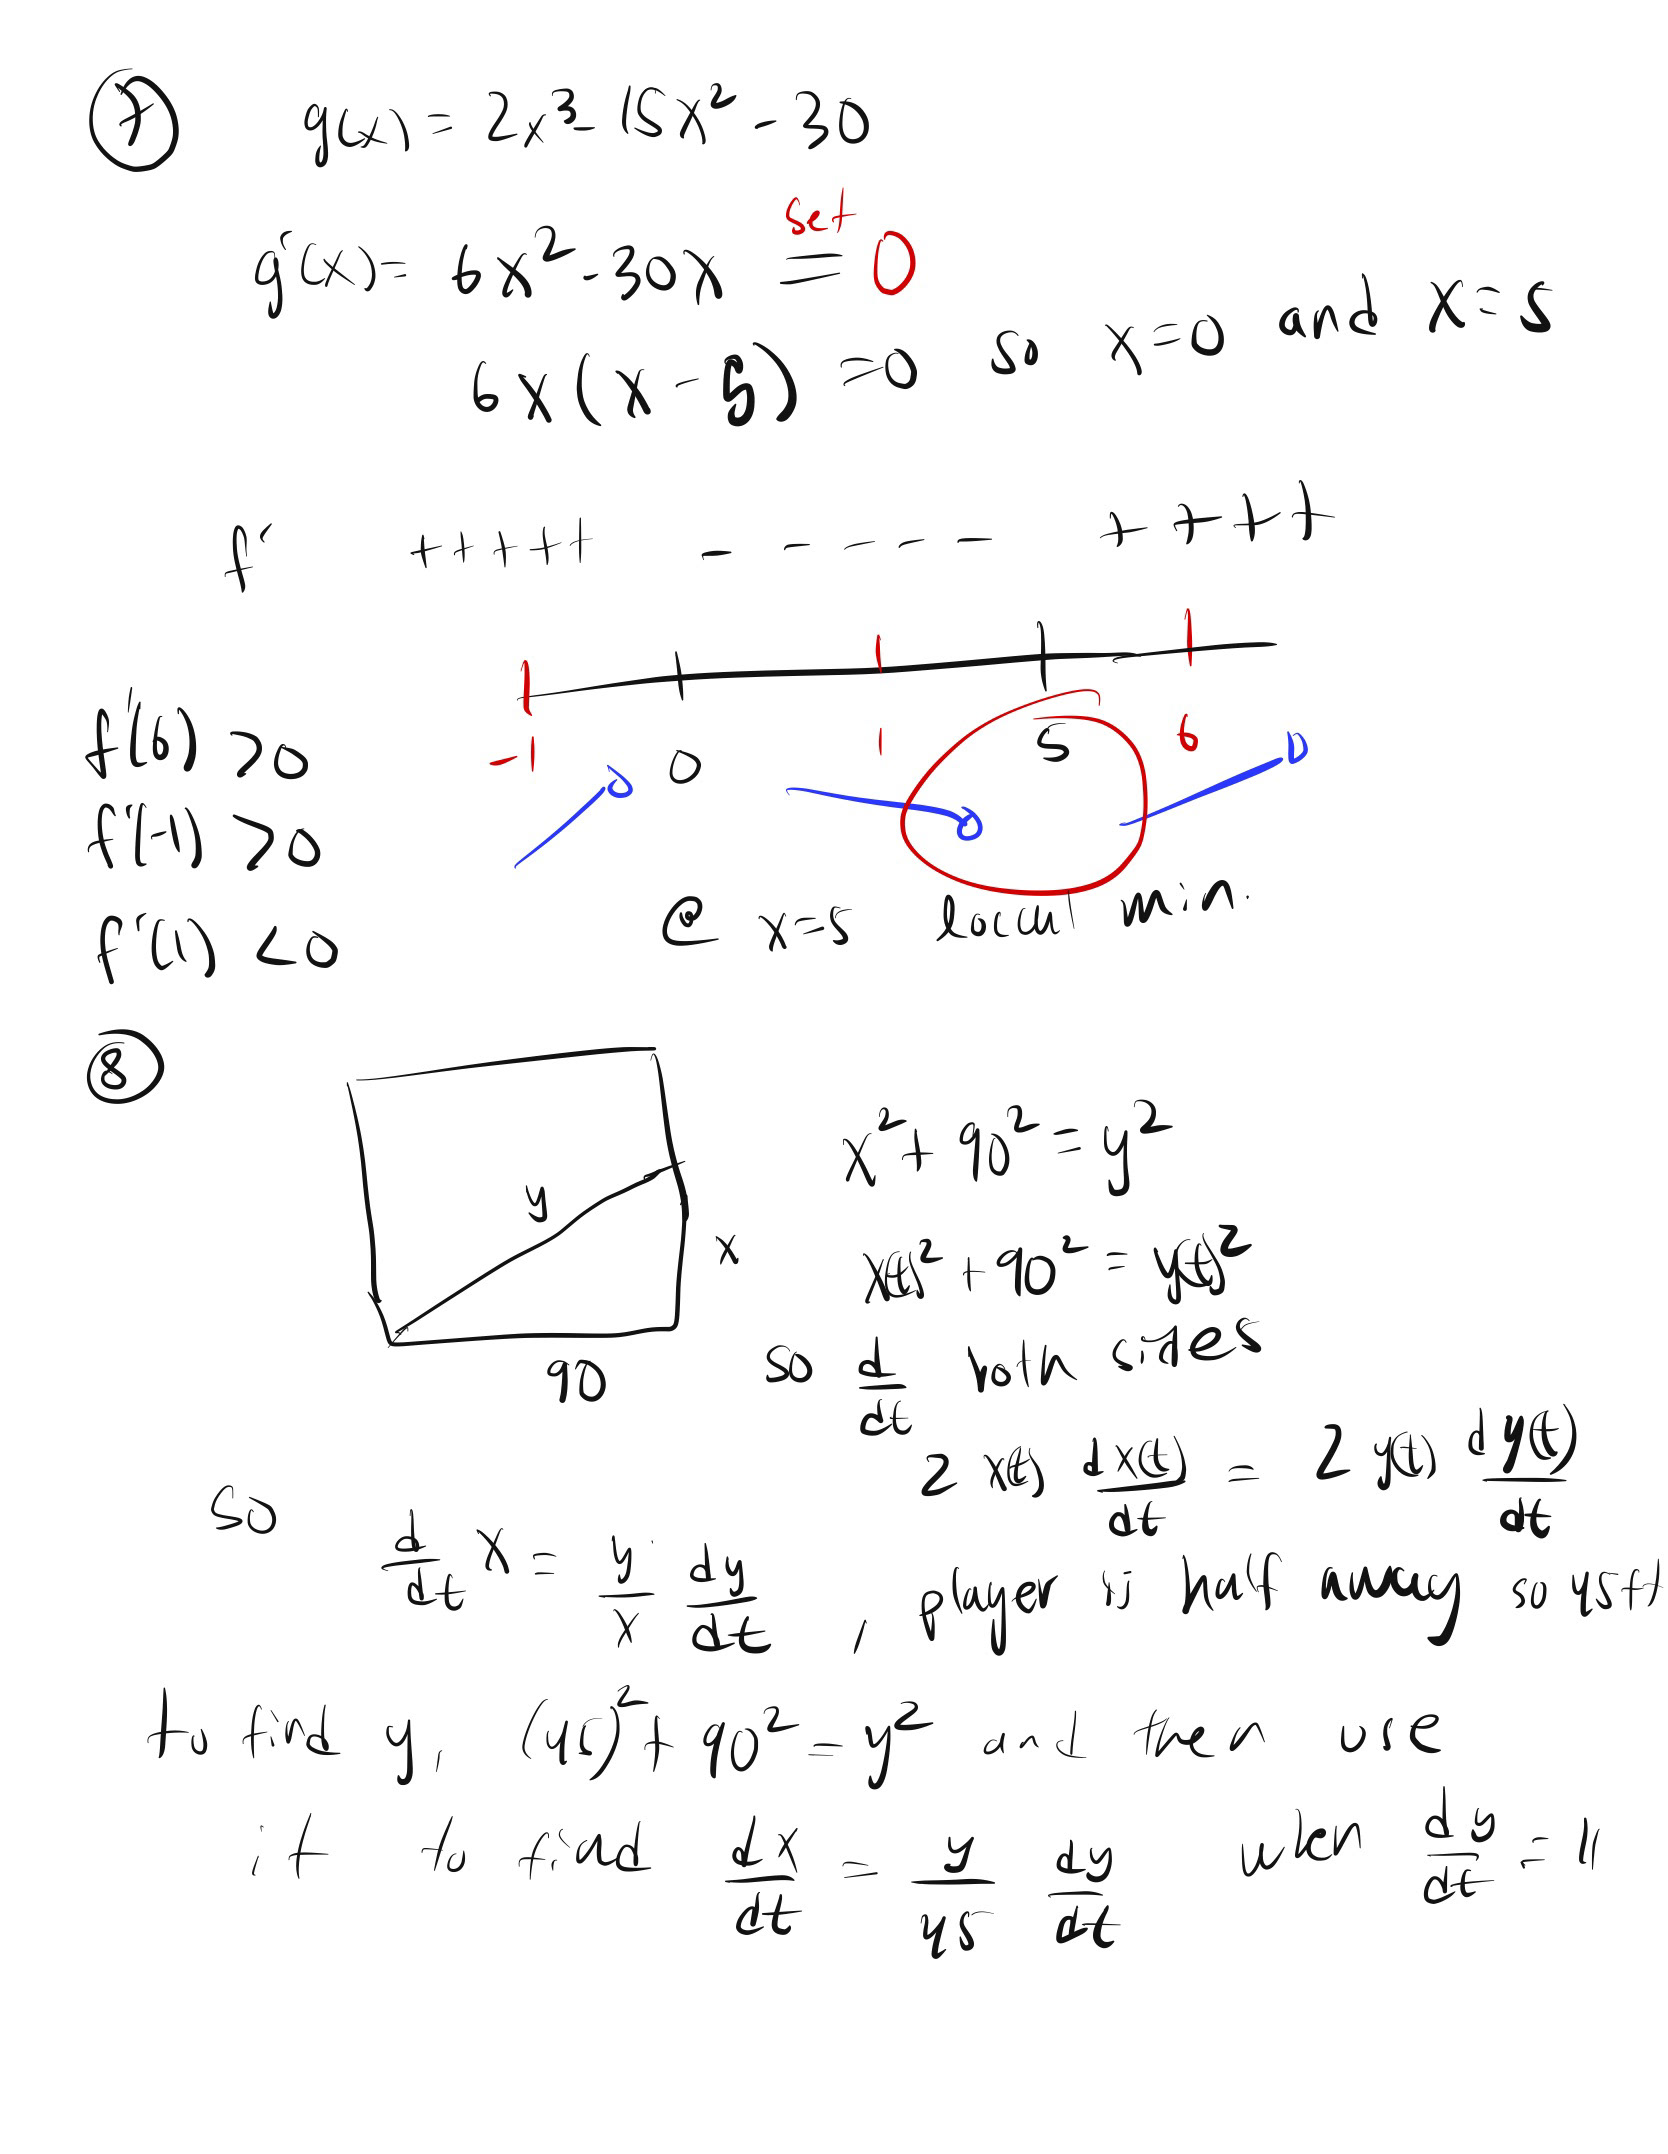 7 g(x) = 2x³ - 15x² - 30
set
g'(x) = 6x² - 30x = 0
6x(x - 5) = 0 so x=0 and x=5
f' +++++ ----- ++++
-1 0 1 5 6
f'(6) >0
f'(-1) >0
f'(1) <0
@ x=5 local min.
8
x² + 90² = y²
y
x
x(t)² + 90² = y(t)²
90
so d/dt both sides
2 x(t) dx(t)/dt = 2 y(t) dy(t)/dt
so d/dt x = y/x dy/dt, player is half away so 45ft
to find y, (45)² + 90² = y² and then use
it to find dx/dt = y/45 dy/dt when dy/dt = 11